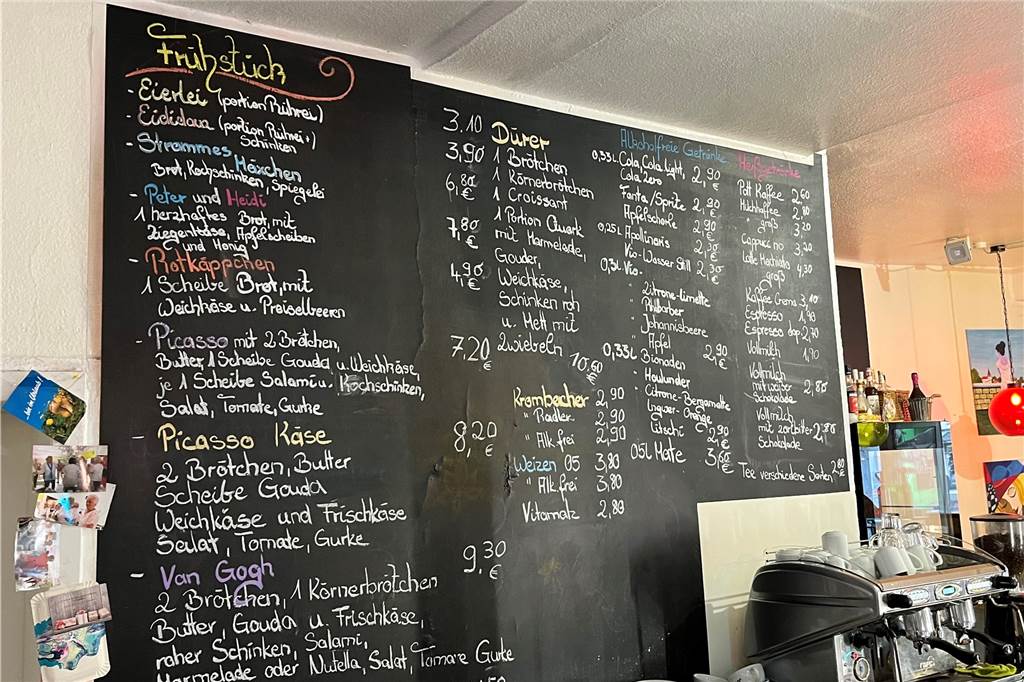 Frühstück
- Eierlei (portion Rührei)
- Eidislava (portion Rührei +)
Schinken
- Strammes Mäxchen
Brot, Kochschinken, Spiegelei
- Peter und Heidi
1 herzhaftes Brot, mit
Ziegenkäse, Apfelscheiben
und Honig
- Rotkäppchen
1 Scheibe Brot, mit
Weichkäse u. Preiselbeern
- Picasso mit 2 Brötchen,
Butter, 1 Scheibe Gouda u. Weichkäse,
je 1 Scheibe Salami u. Kochschinken,
Salat, Tomate, Gurke
- Picasso Käse
2 Brötchen, Butter
Scheibe Gouda
Weichkäse und Frischkäse
Salat, Tomate, Gurke
- Van Gogh
2 Brötchen, 1 Körnerbrötchen
Butter, Gouda u. Frischkäse,
roher Schinken, Salami,
Marmelade oder Nutella, Salat, Tomate Gurke
3.10
3,90
6,80 €
7,80 €
4,90 €
7,20 €
8,20 €
9,30 €
Dürer
1 Brötchen
1 Körnerbrötchen
1 Croissant
1 Portion Quark
mit Marmelade,
Gouder,
Weichkäse,
Schinken roh
u. Mett mit
Zwiebeln 10,60 €
Krombacher 2,90
" Radler 2,90
" Alk.frei 2,90
Weizen 05 3,80
" Alk.frei 3,80
Vitamalz 2,80
Alkoholfreie Getränke
0,33L Cola, Cola light, 2,90 €
Cola Zero
Fanta/Sprite 2,90 €
Apfelschorle 2,90 €
0,25L Apollinaris 2,30
Vio-Wasser Still 2,30 €
0,3L Vio-
" Zitrone-Limette
" Rhbarber
" Johannisbeere
" Apfel 2,90 €
0,33L Bionaden
" Hollunder
" Citrone-Bergamotte
Ingwer Orange
Litschi 2,90
05L Mate 3,60 €
Heißgetränke
Pott Kaffee 2,60
Milchkaffee 2,80
groß 3,20
Cappuccino 3,20
Latte Macchiato
groß 4,30
Kaffee Crema 3,10
Espresso 1,90
Espresso dop. 2,70
Vollmilch 1,90
Vollmilch
mit weiser 2,80
Schokolade
Vollmilch
mit zartbitter 2,80
Schokolade
Tee verschiedene Sorten 2,80 €